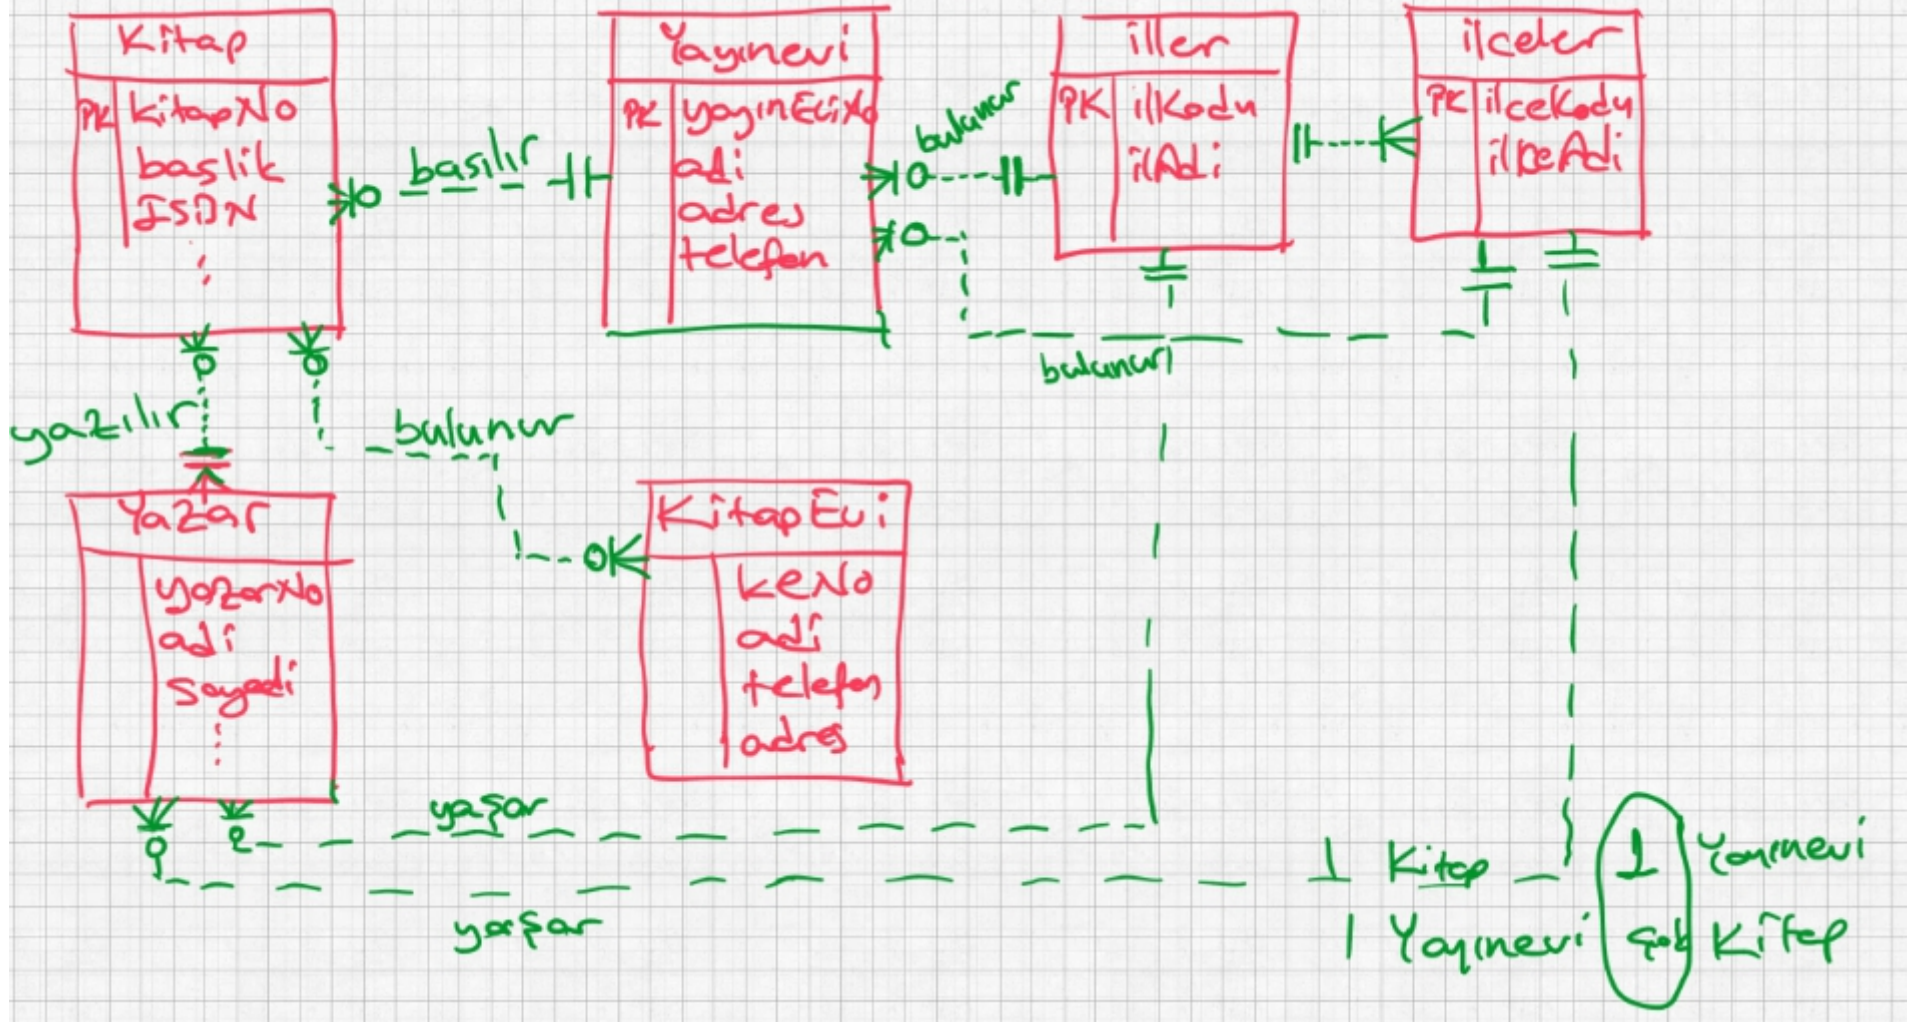 Kitap
PK kitapNo
baslik
ISDN
basılır
Yayınevi
PK yayınEviNo
adi
adres
telefon
bulunur
iller
PK ilKodu
ilAdi
ilceler
PK ilceKodu
ilceAdi
bulunur
yazılır
bulunur
Yazar
yazarNo
adi
Soyadi
KitapEvi
keNo
adi
telefon
adres
yaşar
yaşar
1 Kitap 1 Yayınevi
1 Yayınevi çok Kitap